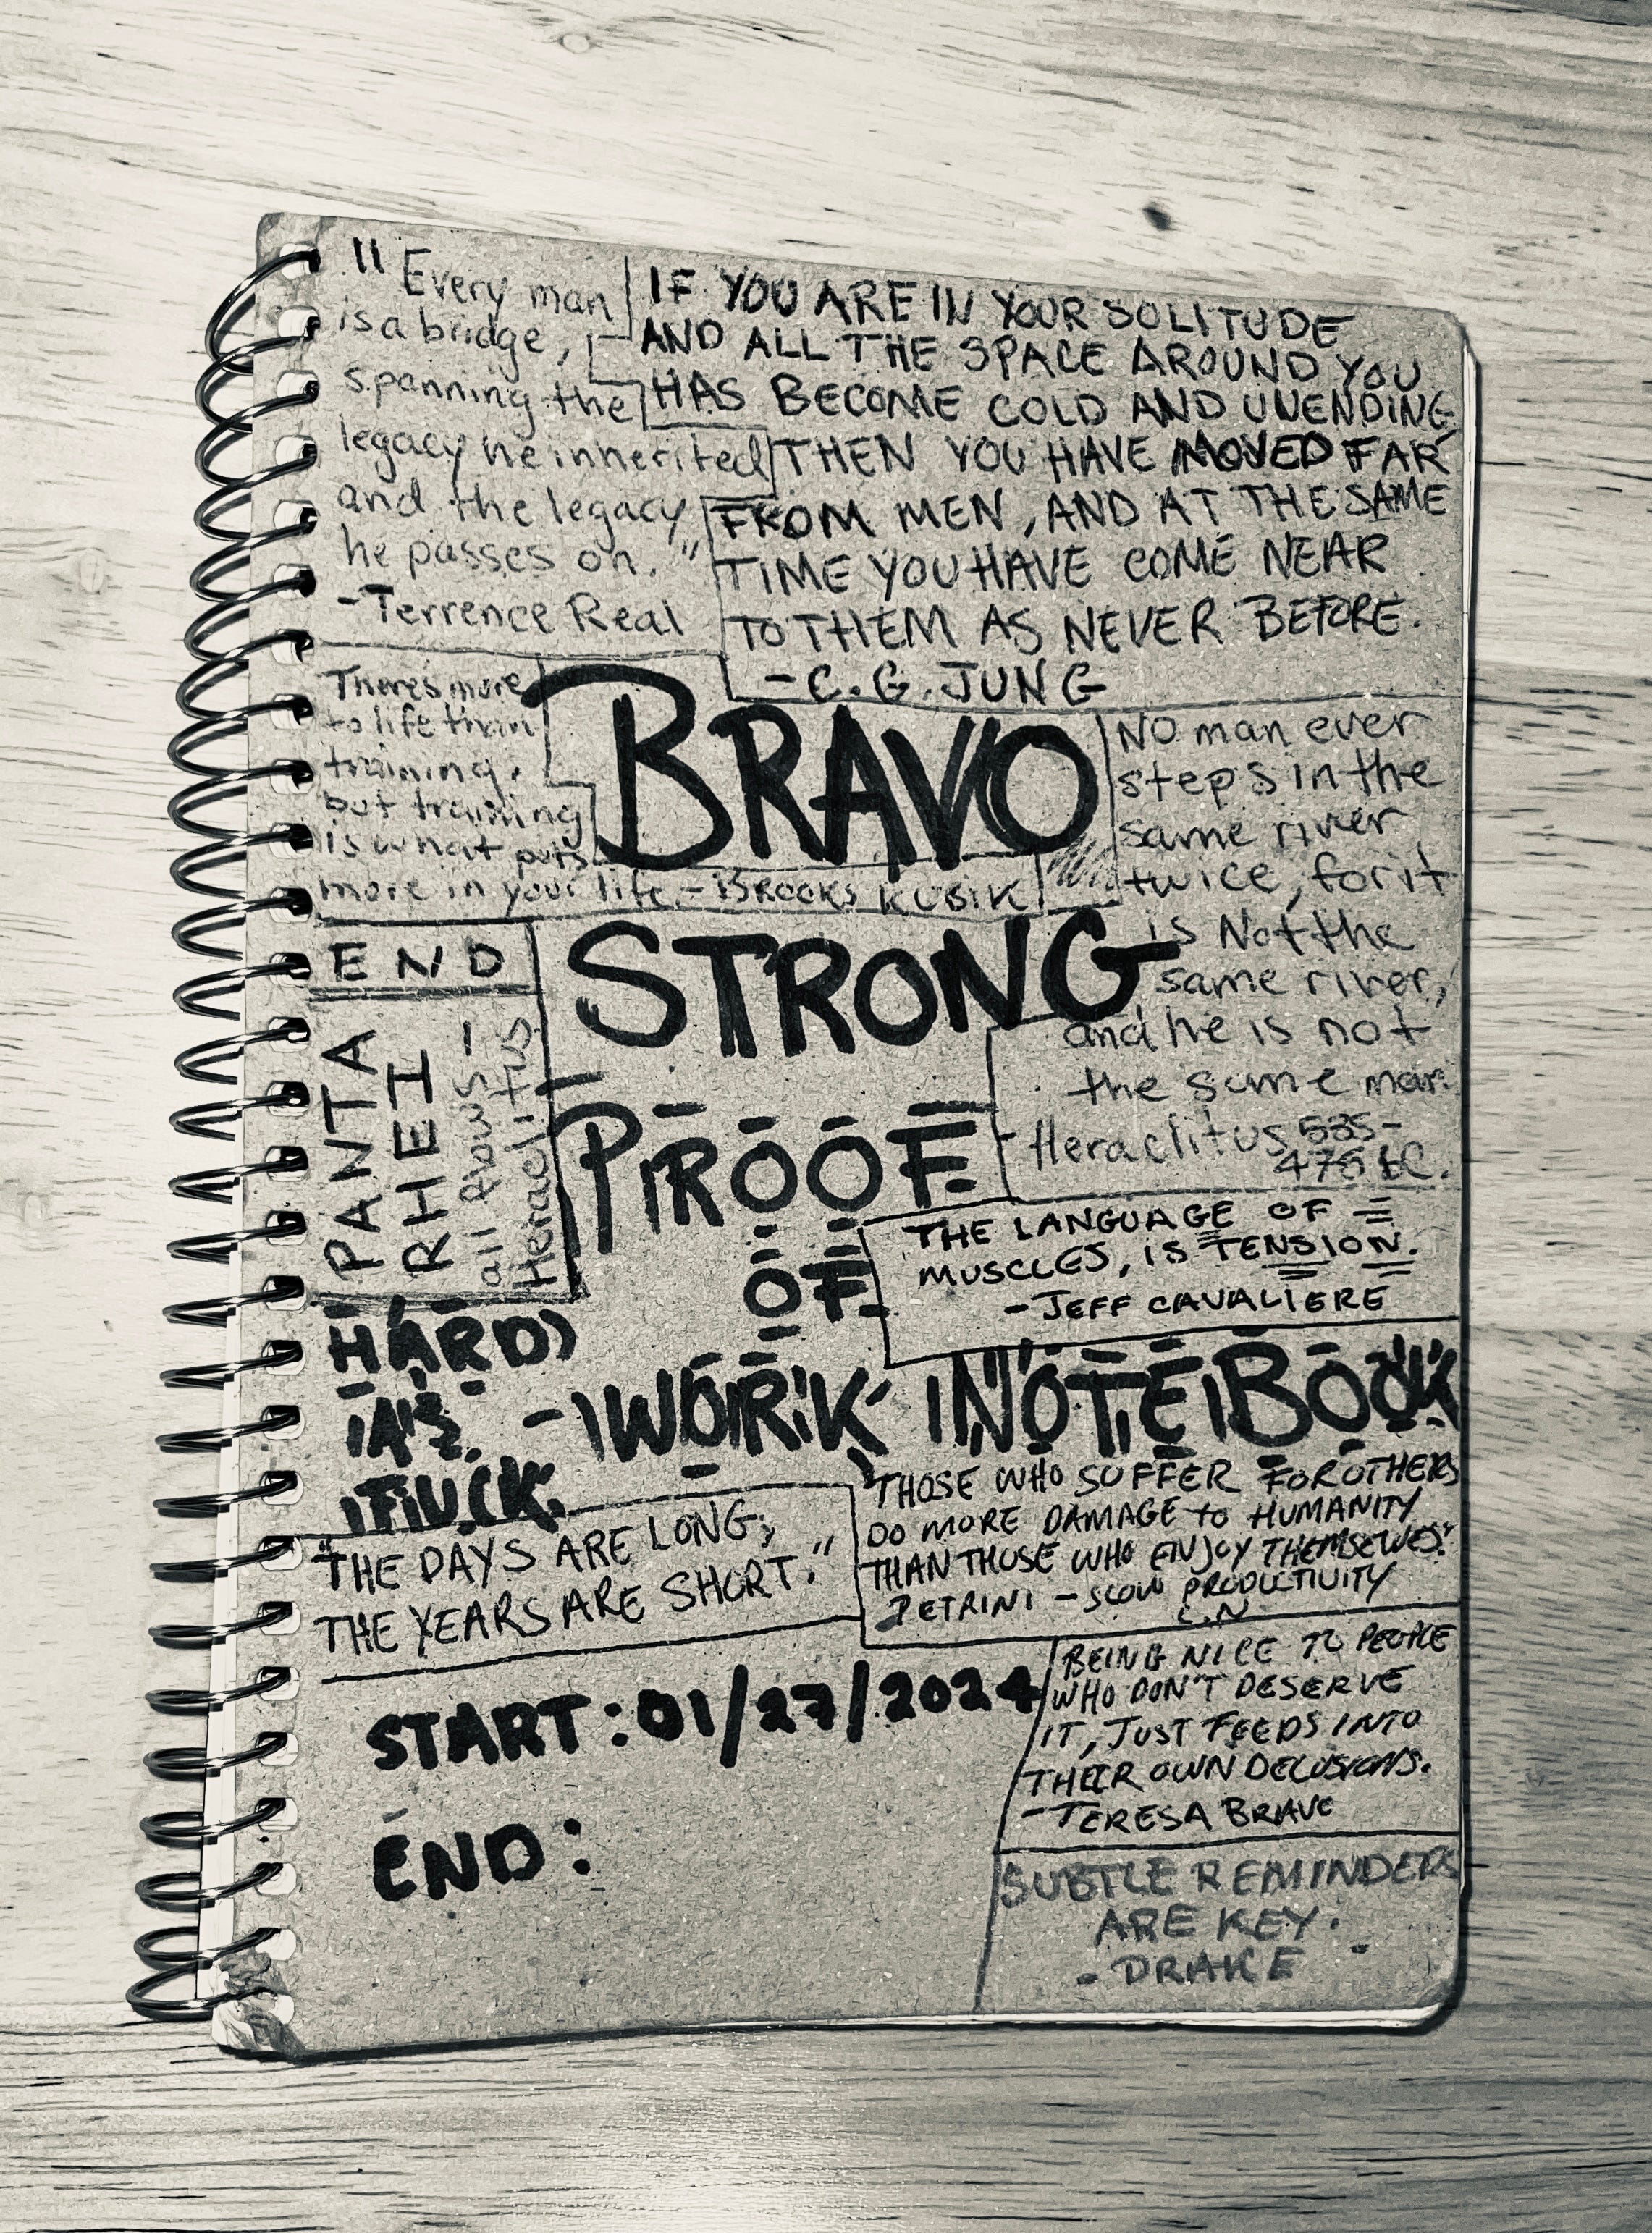 "Every man
is a bridge,
spanning the
legacy he inherited
and the legacy
he passes on."
-Terrence Real
IF YOU ARE IN YOUR SOLITUDE
AND ALL THE SPACE AROUND YOU
HAS BECOME COLD AND UNENDING
THEN YOU HAVE MOVED FAR
FROM MEN, AND AT THE SAME
TIME YOU HAVE COME NEAR
TO THEM AS NEVER BEFORE.
-C.G. JUNG
There's more
to life than
training,
but training
is what puts
more in your life. - BROOKS KUBIK
BRAVO
STRONG
No man ever
steps in the
same river
twice, for it
is Not the
same river,
and he is not
the same man.
-Heraclitus 535-
475 BC.
END
PANTA
RHEI
all flows-
Heraclitus
PROOF
OF
THE LANGUAGE OF
MUSCLES, IS TENSION.
-JEFF CAVALIERE
HARD)
AS
FUCK
-WORK NOTEBOOK
"THE DAYS ARE LONG,
THE YEARS ARE SHORT."
"THOSE WHO SUFFER FOR OTHERS
DO MORE DAMAGE to HUMANITY
THAN THOSE WHO ENJOY THEMSELVES."
PETRINI - SLOW PRODUCTIVITY
C.N
START: 01/27/2024
END:
BEING NICE TO PEOPLE
WHO DON'T DESERVE
IT, JUST FEEDS INTO
THEIR OWN DELUSIONS.
-TERESA BRAVE
SUBTLE REMINDERS
ARE KEY.
- DRAKE